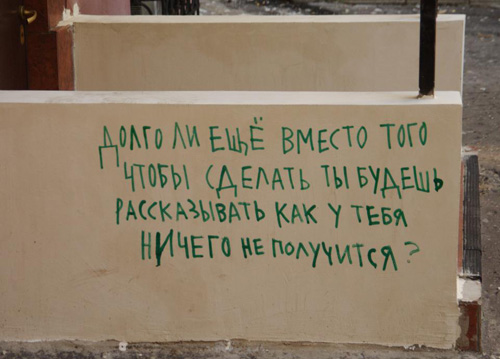 ДОЛГО ЛИ ЕЩЁ ВМЕСТО ТОГО
ЧТОБЫ СДЕЛАТЬ ТЫ БУДЕШЬ
РАССКАЗЫВАТЬ КАК У ТЕБЯ
НИЧЕГО НЕ ПОЛУЧИТСЯ?